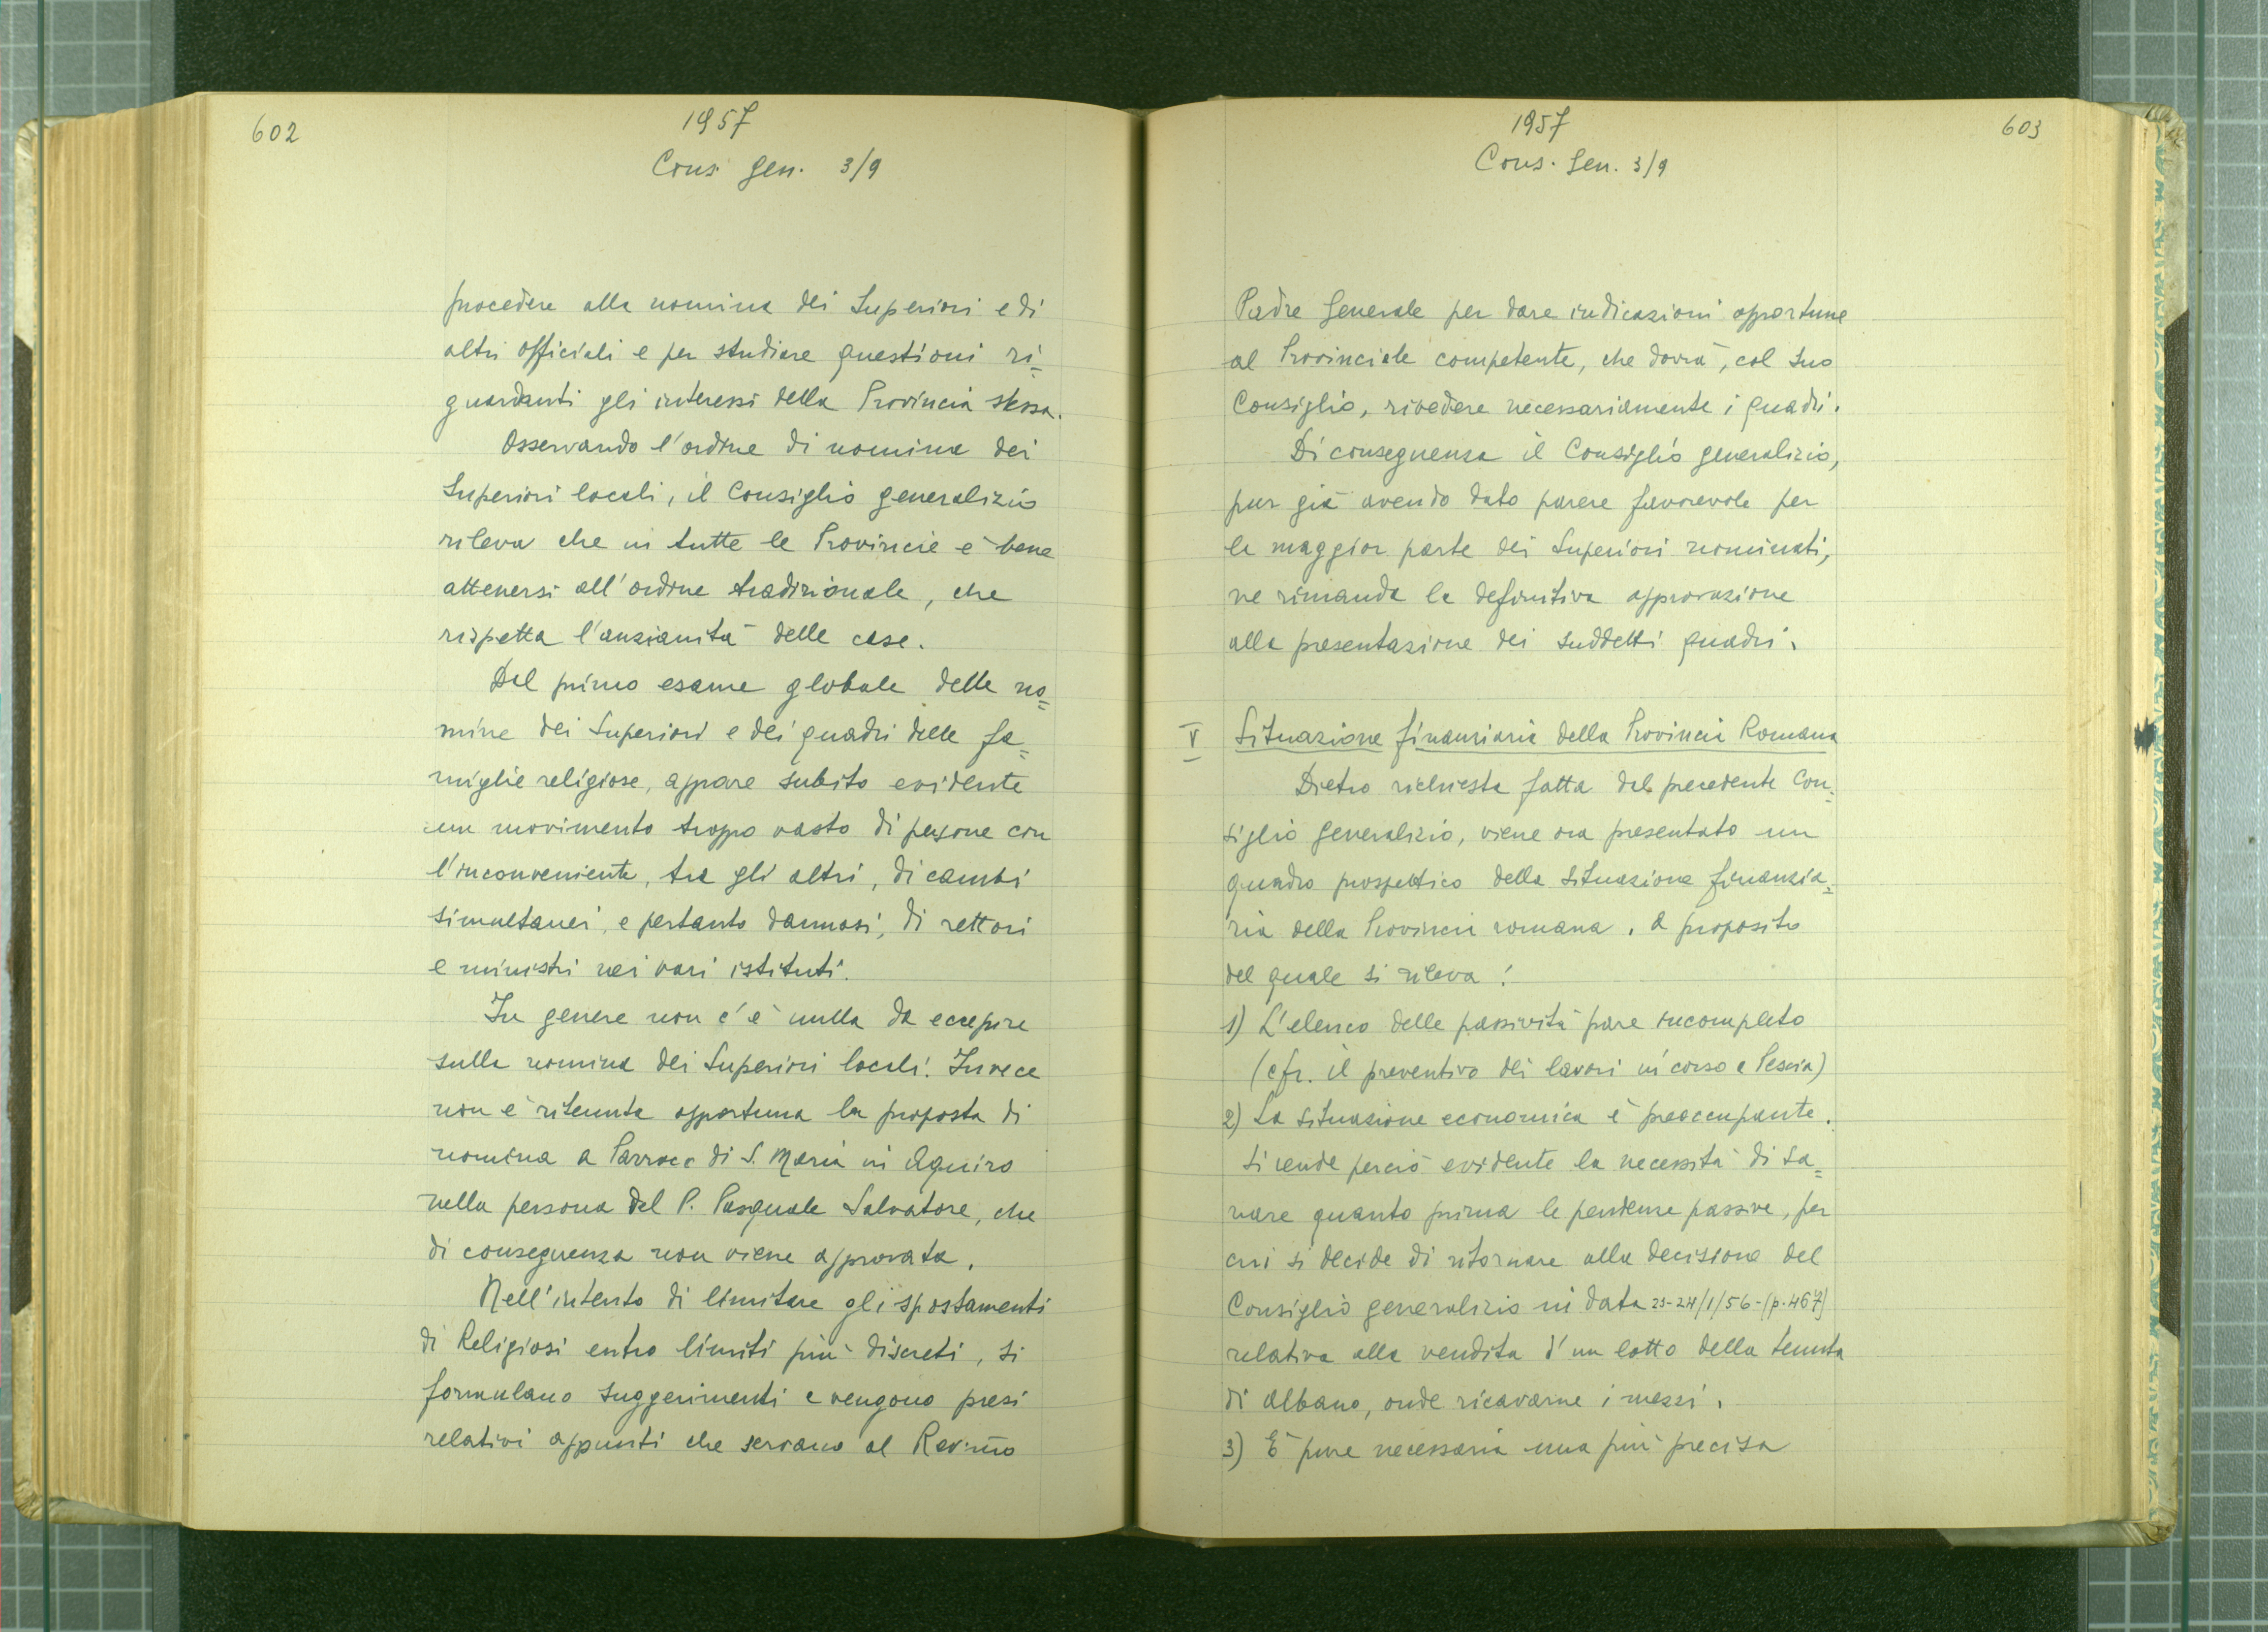 602
1957
Cons. Gen. 3/9
procedere alla nomina dei Superiori e di
altri officiali e per studiare questioni ri=
guardanti gli interessi della Provincia stessa.
Osservando l'ordine di nomina dei
Superiori locali, il Consiglio generalizio
rileva che in tutte le Provincie è bene
attenersi all'ordine tradizionale, che
rispetta l'anzianità delle case.
Dal primo esame globale delle no=
mine dei Superiori e dei quadri delle fa=
miglie religiose, appare subito evidente
un movimento troppo vasto di persone con
l'inconveniente, tra gli altri, di cambi
simultanei, e pertanto dannosi, di rettori
e ministri nei vari istituti.
In genere non c'è nulla da eccepire
sulla nomina dei Superiori locali. Invece
non è ritenuta opportuna la proposta di
nomina a Parroco di S. Maria in Aquiro
nella persona del P. Pasquale Salvatore, che
di conseguenza non viene approvata.
Nell'intento di limitare gli spostamenti
di Religiosi entro limiti più discreti, si
formulano suggerimenti e vengono presi
relativi appunti che servano al Rev.mo
603
1957
Cons. Gen. 3/9
Padre Generale per dare indicazioni opportune
al Provinciale competente, che dovrà, col suo
Consiglio, rivedere necessariamente i quadri.
Di conseguenza il Consiglio generalizio,
pur già avendo dato parere favorevole per
la maggior parte dei Superiori nominati,
ne rimanda la definitiva approvazione
alla presentazione dei suddetti quadri.
V Situazione finanziaria della Provincia Romana
Dietro richiesta fatta dal precedente Con=
siglio generalizio, viene ora presentato un
quadro prospettico della situazione finanzia=
ria della Provincia romana, a proposito
del quale si rileva:
1) L'elenco delle passività pare incompleto
(cfr. il preventivo dei lavori in corso a Pescia)
2) La situazione economica è preoccupante.
Si rende perciò evidente la necessità di sa=
nare quanto prima le pendenze passive, per
cui si decide di ritornare alla decisione del
Consiglio generalizio in data 23-24/1/56-(p.467)
relativa alla vendita d'un lotto della tenuta
di Albano, onde ricavarne i mezzi.
3) È pure necessaria una più precisa